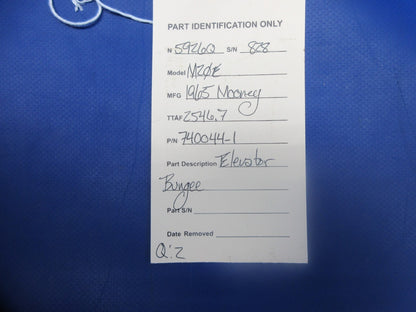 PART IDENTIFICATION ONLY
N 5926Q S/N 828
Model M20E
MFG 1965 Mooney
TTAF 2546.7
P/N 740044-1
Part Description Elevator
Bungee
Part S/N
Date Removed
Q:2